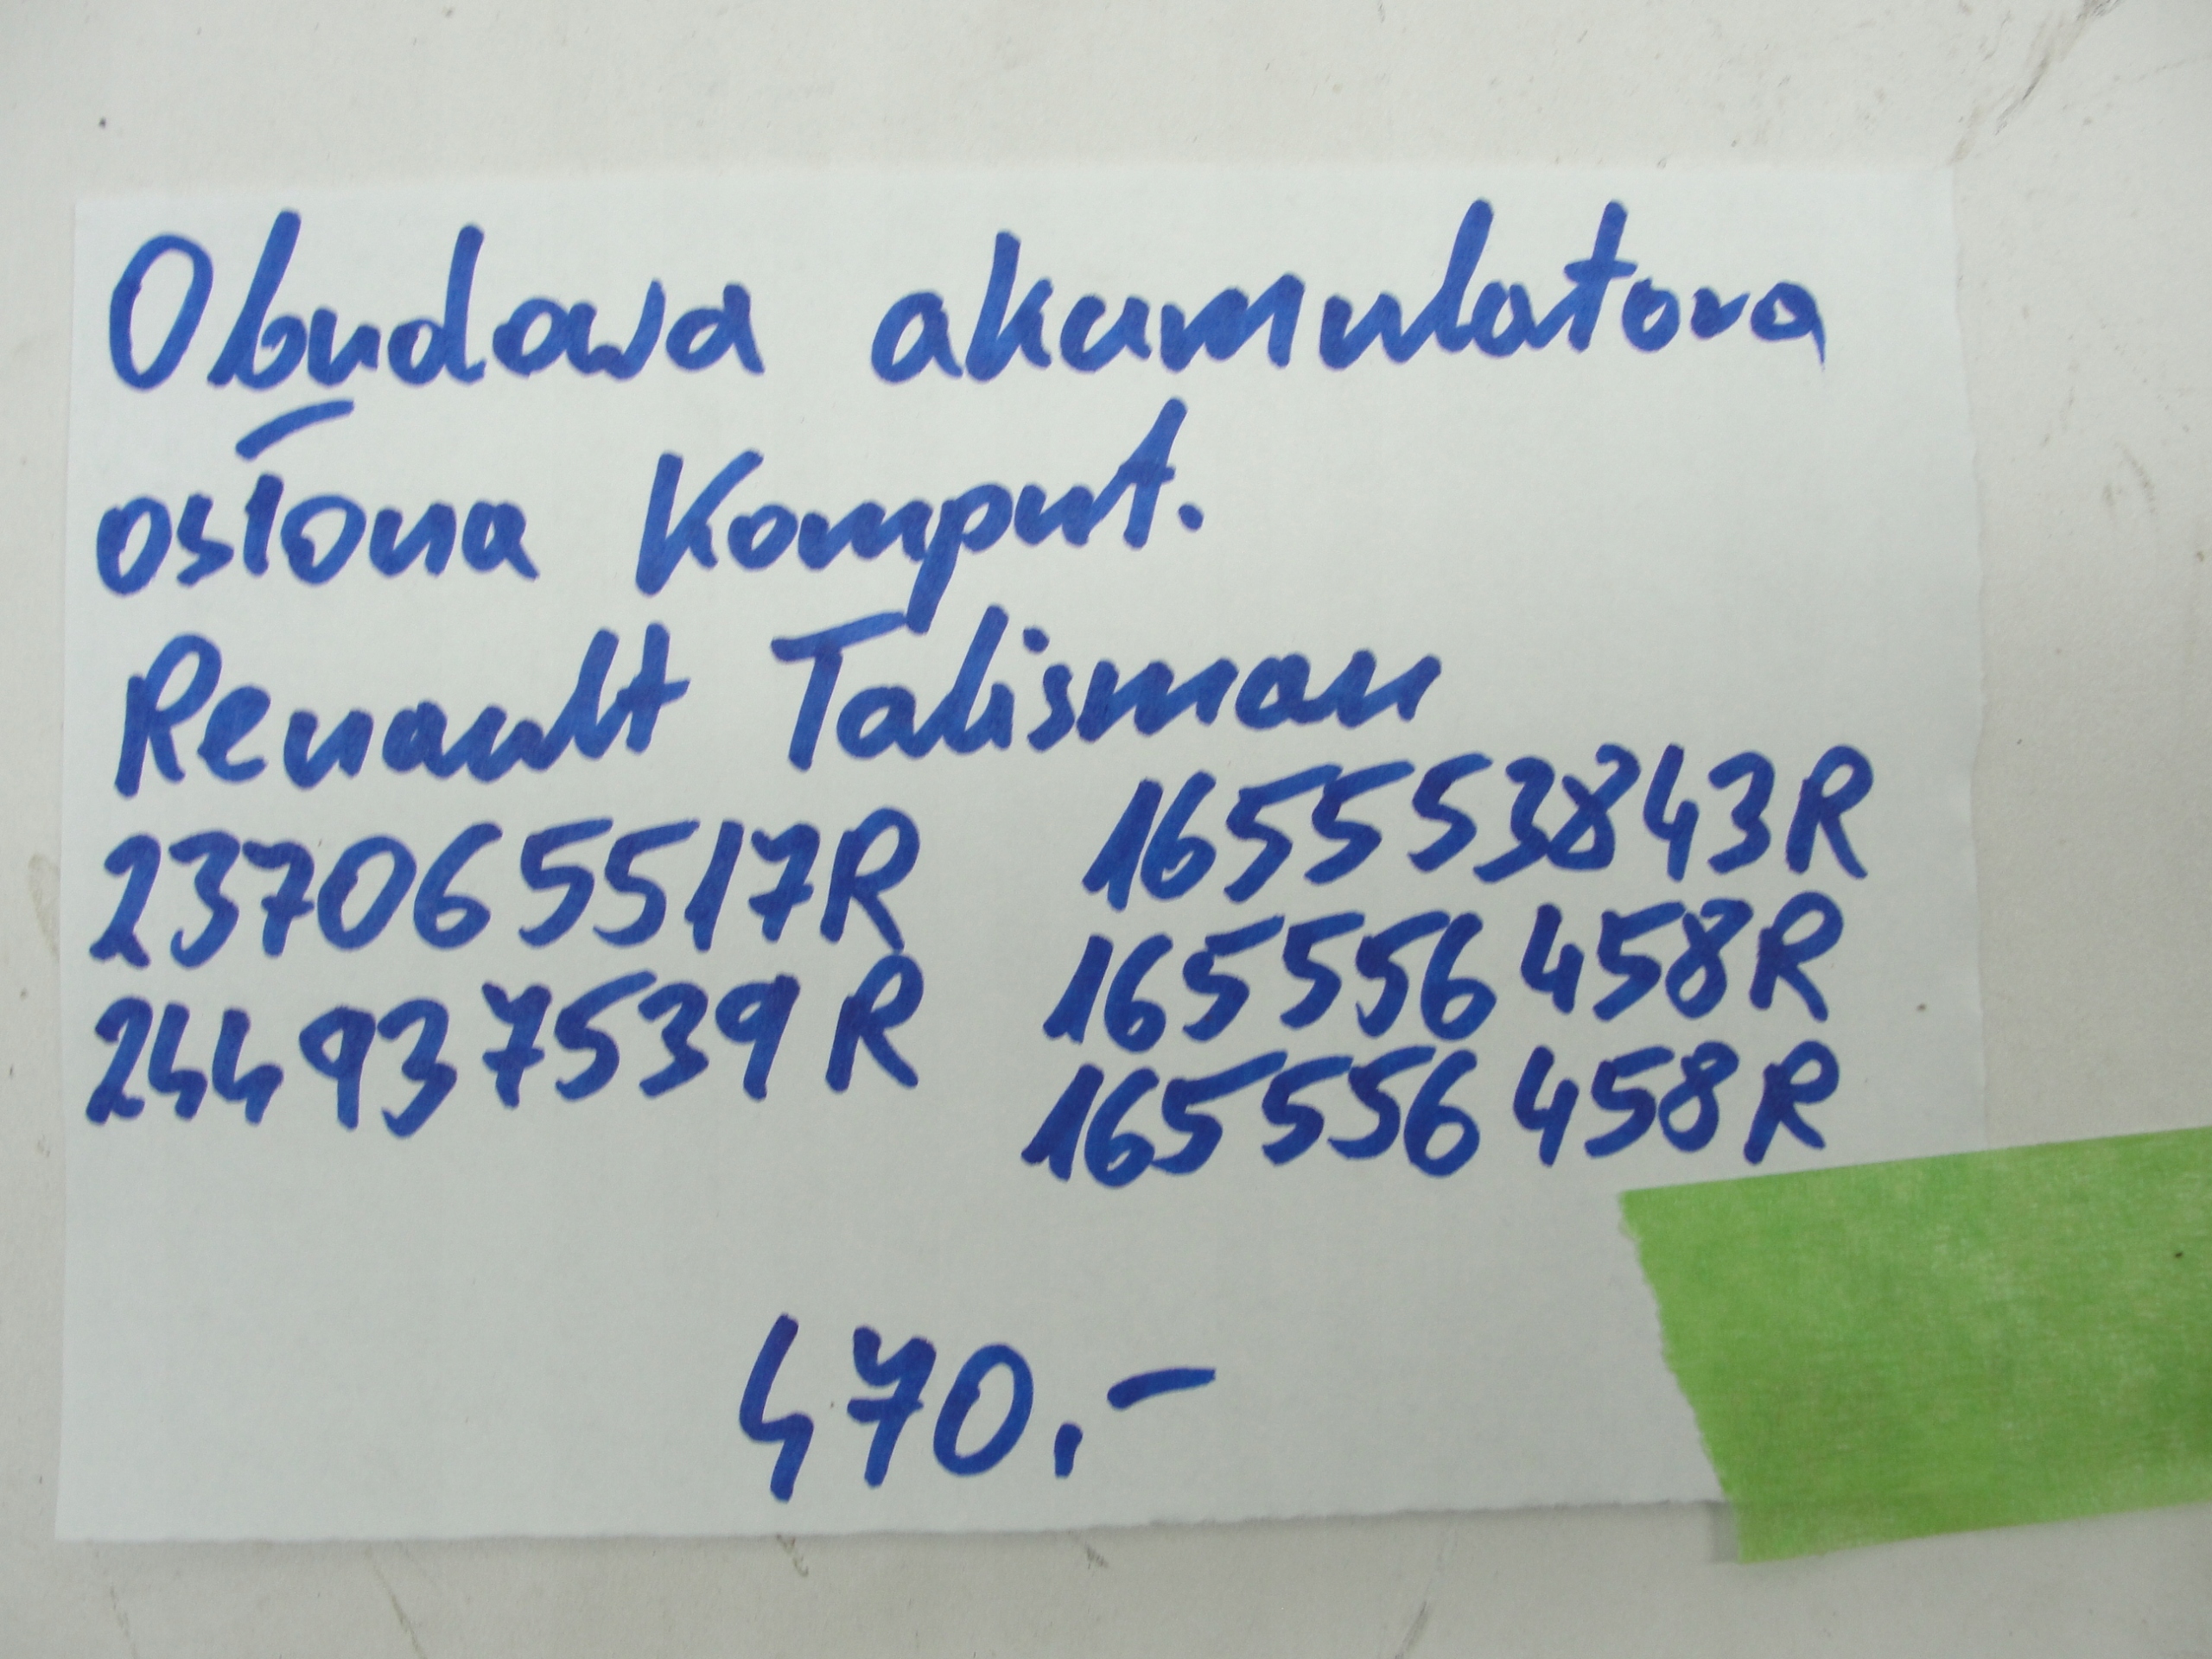 Obudowa akumulatora
osłona komput.
Renault Talisman
237065517R
244937539R
165553843R
165556458R
165556458R
470.-